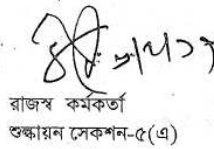 রাজস্ব কর্মকর্তা
শুল্কায়ন সেকশন-৫(এ)